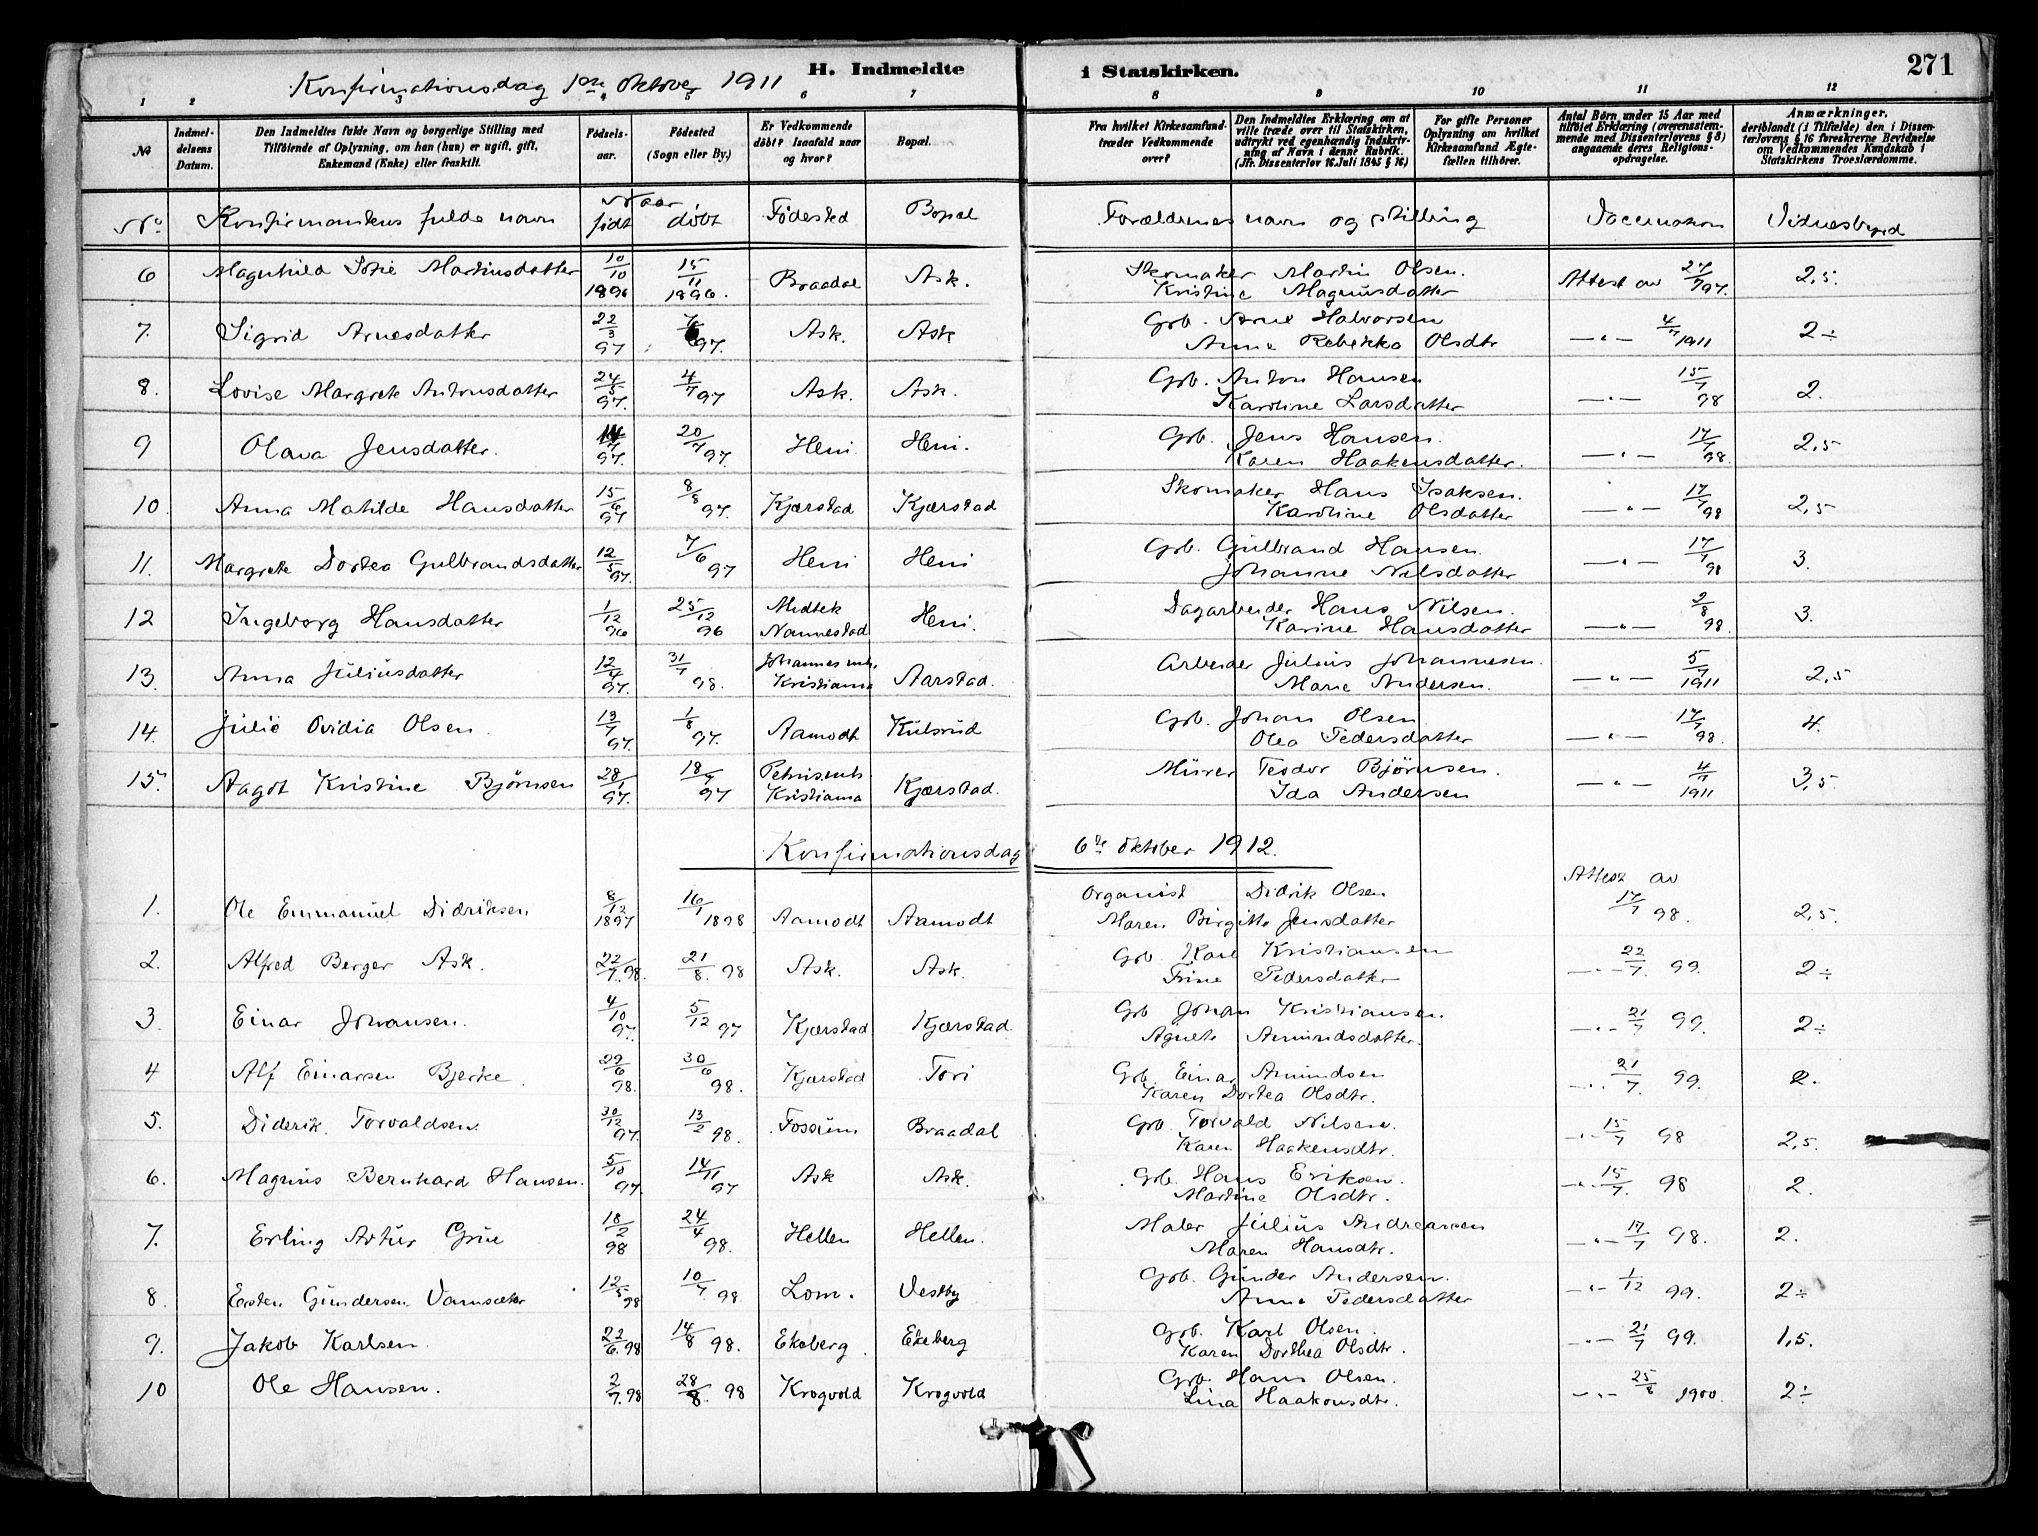 271
H. Indmeldte i Statskirken.
Konfirmationsdag 1ste oktober 1911
1 2 3 4 5 6 7 8 9 10 11 12
No
Indmeldelsens Datum.
Den Indmeldtes fulde Navn og borgerlige Stilling med Tilføiende af Oplysning, om han (hun) er ugift, gift, Enkemand (Enke) eller fraskilt.
Fødselsaar.
Fødested (Sogn eller By.)
Er Vedkommende døbt? Isaafald naar og hvor?
Bopæl.
Fra hvilket Kirkesamfund træder Vedkommende over?
Den Indmeldtes Erklæring om at ville træde over til Statskirken, udtrykt ved egenhændig Indskrivning af Navn i denne Rubrik. (Jfr. Dissenterlov 16. Juli 1845 § 16)
For gifte Personer Oplysning om hvilket Kirkesamfund Ægtefællen tilhører.
Antal Børn under 15 Aar med tilføiet Erklæring (overensstemmende med Dissenterlovens § 8) angaaende deres Religionsopdragelse.
Anmærkninger, deriblandt (i Tilfælde) den i Dissenterlovens § 16 foreskrevne Bevidnelse om Vedkommendes Kundskab i Statskirkens Troeslærdomme.
No. Konfirmantens fulde navn Naar født døbt Fødested Bopæl Forældrenes navn og stilling Vaccination Vidnesbyrd
6 Magnhild Sofie Martinsdatter 10/10 1896 15/11 1896. Braadal Ask. Skomaker Martin Olsen. Attest av 27/7 97. 2,5.
Kristine Magnusdatter
7. Sigrid Arnesdatter 22/3 97 97. Ask. Ask Grb. Arne Halvorsen —"— 4/7 1911 2÷
Anne Rebekka Olsdtr
8. Lovise Margrete Antonsdatter 24/5 97. 4/7 97 Ask. Ask. Grb. Anton Hansen —"— 15/7 98 2.
Karoline Larsdatter
9 Olava Jensdatter. 97. 20/7 97. Heni Heni. Grb. Jens Hansen. —"— 17/7 98. 2,5
Karen Haakensdatter.
10. Anna Matilde Hansdatter 15/6 97 8/8 97. Kjærstad Kjærstad Skomaker Hans Isaksen. —"— 17/7 98 2,5
Karoline Olsdatter
11. Margrete Dortea Gulbrandsdatter 12/5 97. 7/6 97 Heni Heni Grb. Gulbrand Hansen. —"— 17/7 98 3.
Johanne Nilsdatter
12 Ingeborg Hansdatter 1/12 96 25/12 96 Nannestad Heni. Dagarbeider Hans Nilsen. —"— 2/8 98. 3.
Karine Hansdatter
13. Anna Juliusdatter 12/4 97. 31/7 98. Johannes mh. Kristiania Aarstad. Arbeider Julius Johannesen. —"— 5/7 1911 2,5
Marie Andersen.
14. Julie Ovidia Olsen. 13/7 97. 1/8 97. Aamodt Kulsrud Grb. Johan Olsen —"— 17/7 98. 4.
Olea Pedersdatter
15. Aagot Kristine Bjørnsen 28/1 97. 18/7 97 Petrus mh Kristiania Kjærstad. Murer Teodor Bjørnsen. —"— 4/7 1911 3,5.
Ida Andersen
Konfirmationsdag 6te oktober 1912.
1. Ole Emmanuel Didriksen 8/12 1897 16/1 1898 Aamodt Aamodt Organist Didrik Olsen Attest av 17/7 98. 2,5.
Maren Birgitte Jensdatter
2. Alfred Berger Ask. 22/7.98. 21/8. 98 Ask. Ask. Grb. Karl Kristiansen —"— 22/7. 99. 2÷
Trine Pedersdatter
3. Einar Johansen. 4/10 97. 5/12 97 Kjærstad Kjærstad Grb Johan Kristiansen. —"— 21/7 99. 2÷
Agnete Amundsdatter.
4 Alf Einarsen Bjerke. 29/6 98. 30/6 98. Kjærstad Tori Grb. Einar Amundsen —"— 21/7 99. 2.
Karen Dortea Olsdtr.
5. Diderik Torvaldsen. 30/12 97. 13/2 98. Fossum Braadal Grb. Torvald Nilsen. —"— 15/7 98 2,5.
Karen Haakensdtr.
6. Magnus Bernhard Hansen. 5/10 97. 14/11 97 Ask Ask. Grb. Hans Eriksen. —"— 15/7. 98 2.
Martine Olsdtr.
7. Erling Artur Grue 18/2 98 24/4 98. Hellen Hellen. Maler Julius Andreassen —"— 17/7 98. 2.
Maren Hansdtr.
8. Esten Gundersen Vamsæter 12/5 98 10/7 98 Lom. Vestby Grb. Gunder Andersen. —"— 1/12 99. 2÷
Anne Pedersdatter
9. Jakob Karlsen. 22/6.98 14/8 98. Ekeberg Ekeberg Grb. Karl Olsen. —"— 21/7 99. 1,5.
Karen Dorthea Olsdtr.
10 Ole Hansen. 2/7.98 28/8. 98 Krogvold Krogvold Grb. Hans Olsen. —"— 25/8 1900. 2÷
Lina Haakonsdtr.